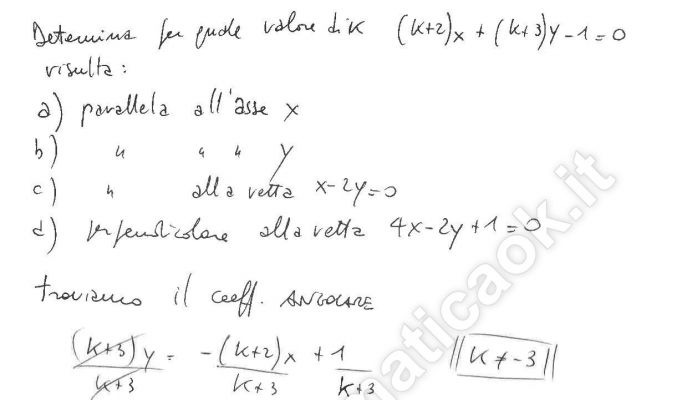 Determina per quale valore di K (K+2)x + (K+3)y - 1 = 0
risulta:
a) parallela all'asse x
b) " " " y
c) " alla retta x-2y=0
d) perpendicolare alla retta 4x-2y+1=0
troviamo il coeff. ANGOLARE
(K+3)y/K+3 = -(K+2)x/K+3 + 1/K+3 ||K≠-3||
maticaok.it